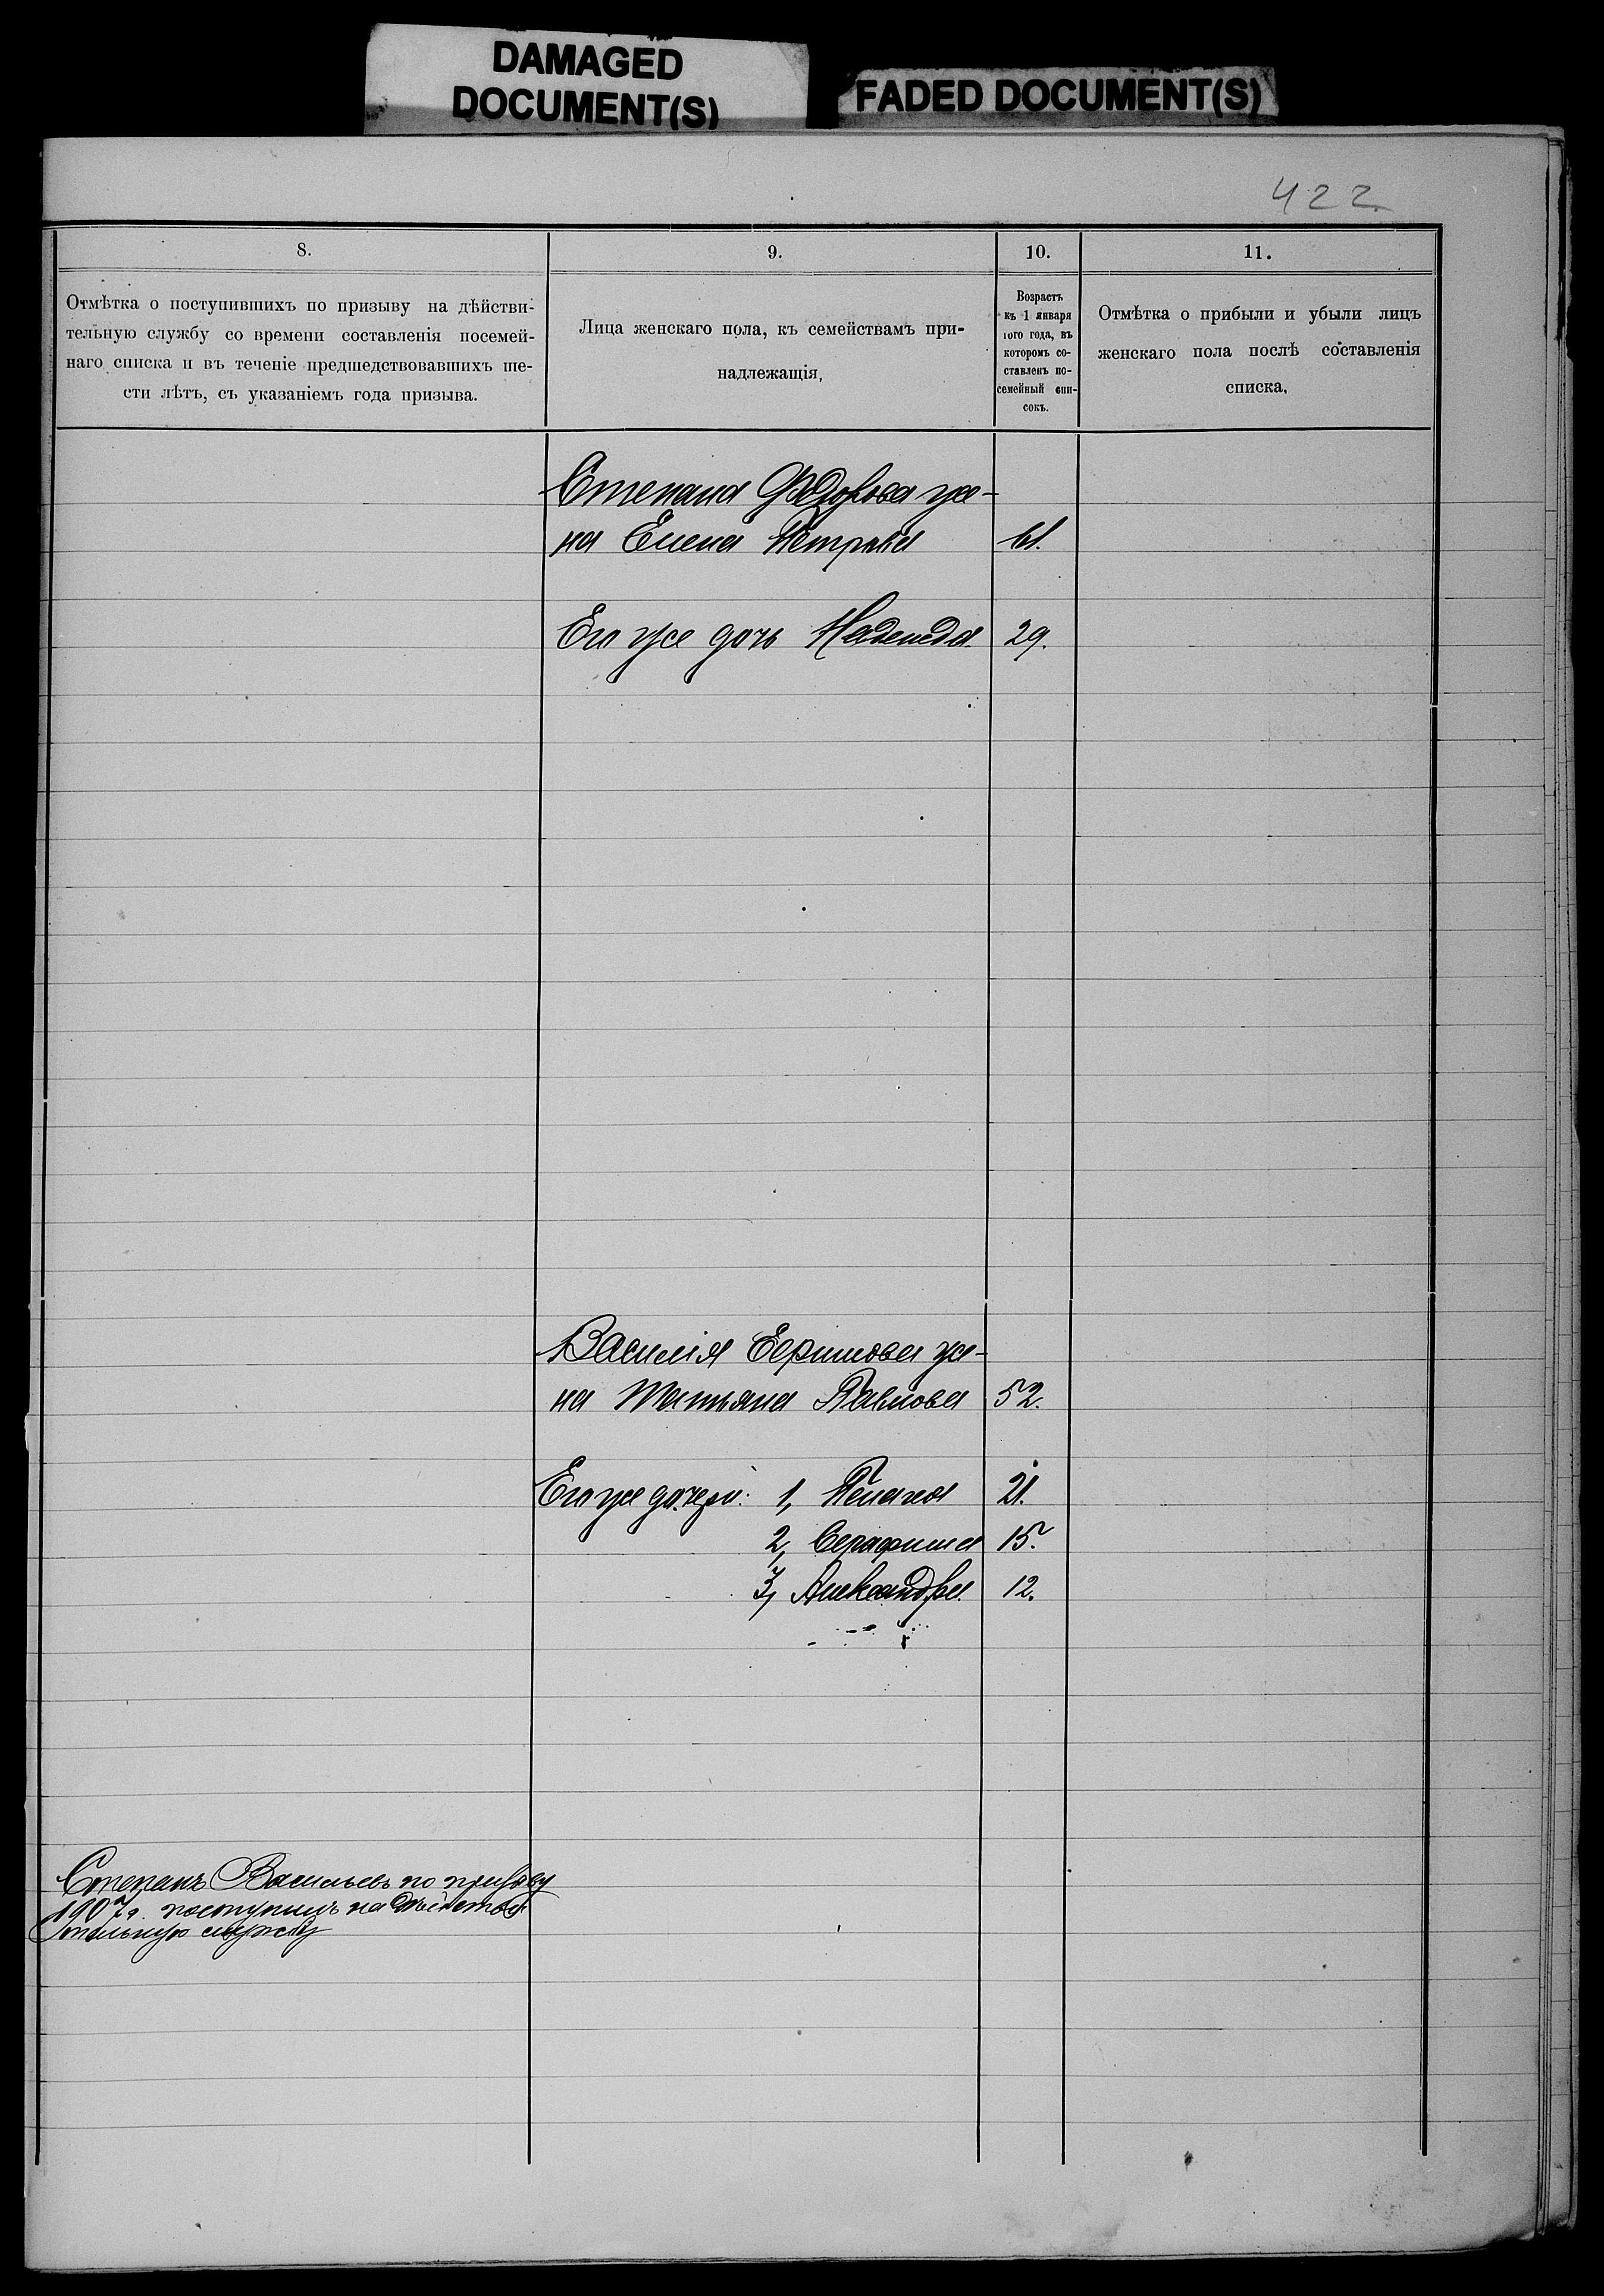 DAMAGED
DOCUMENT(S)
FADED DOCUMENT(S)
422
8.
Отмѣтка о поступившихъ по призыву на дѣйстви-
тельную службу со времени составленія посемей-
наго списка и въ теченіе предшедствовавшихъ ше-
сти лѣтъ, съ указаніемъ года призыва.
9.
Лица женскаго пола, къ семействамъ при-
надлежащія,
10.
Возрастъ
къ 1 января
того года, въ
которомъ со-
ставленъ по-
семейный спи-
сокъ.
11.
Отмѣтка о прибыли и убыли лицъ
женскаго пола послѣ составленія
списка.
Степана Ѳедорова же-
на Елена Петрова 61.
Его же дочь Надежда. 29.
Василія Ефимова же-
на Татьяна Павлова 52.
Его же дочери: 1, Пелагея 21.
2, Серафима 15.
3, Александра. 12.
Степанъ Васильевъ по призыву
1907 г. поступилъ на дѣйстви
тельную службу